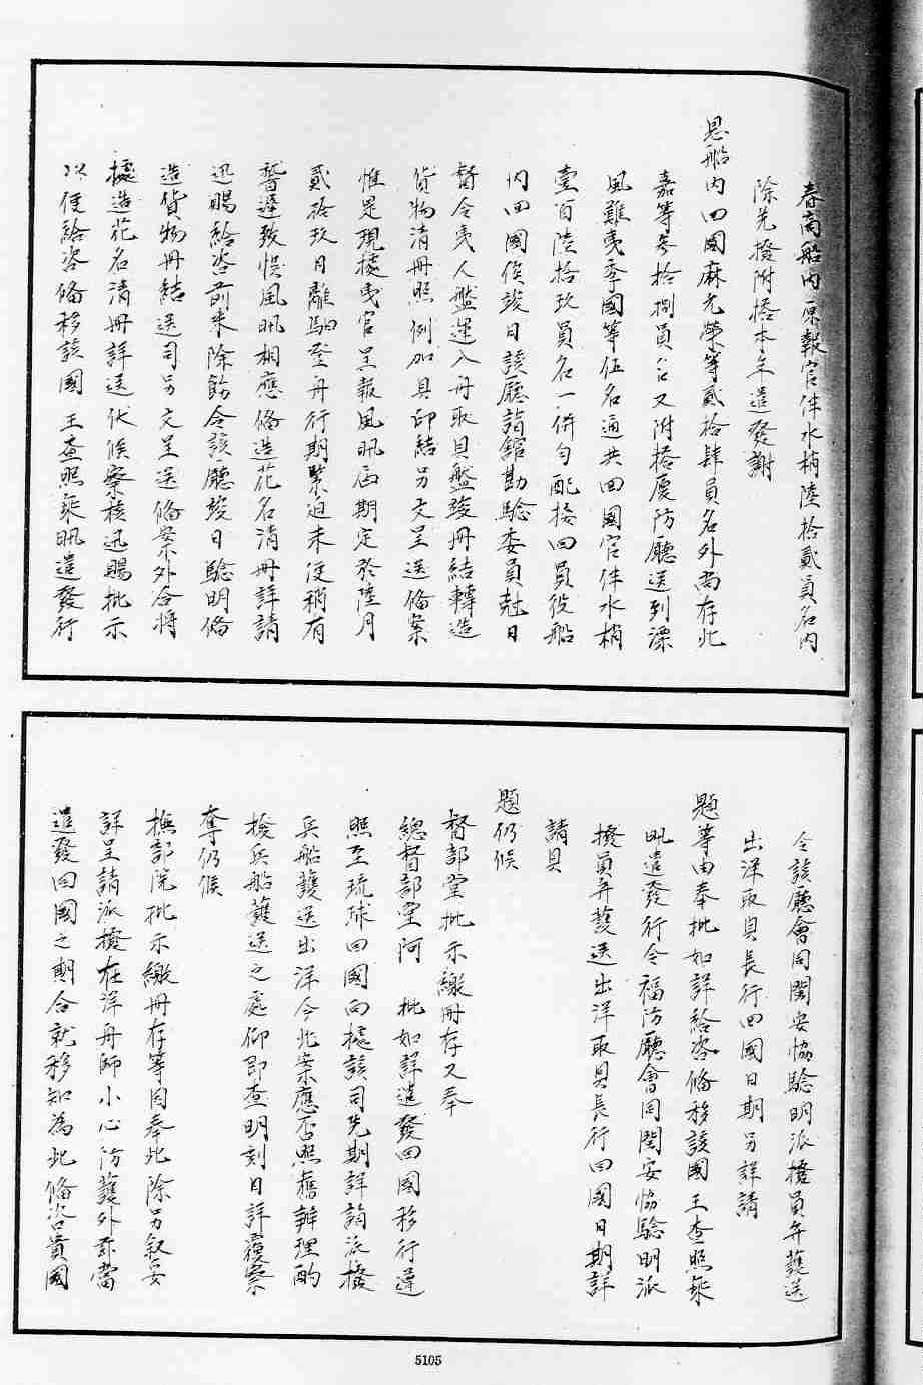 春高船內原報官伴水梢陸拾貳員名內
除先撥附搭本年遣發謝
恩船內回國麻允榮等貳拾肆員名外尚存此
嘉等叁拾捌員名又附搭廈防廳送到漂
風難夷季國等伍名通共回國官伴水梢
壹百陸拾玖員名一併勻配撥回員役船
內回國俟竣日該廳詣館勘驗委員尅日
督令夷人盤運入舟取具盤竣冊結轉造
貨物清冊照例加具印結另文呈送備案
惟是現據夷官呈報風帆屆期定於陸月
貳拾玖日離驛登舟行期緊迫未便稍有
稽遲致悞風帆相應備造花名清冊詳請
迅賜給咨前來除飭令該廳竣日驗明備
造貨物冊結送司另文呈送備案外合將
據造花名清冊詳送伏候察核迅賜批示
以便給咨備移該國王查照乘帆遣發行
令該廳會同閩安協驗明派撥員弁護送
出洋取具長行回國日期另詳請
題等由奉批如詳給咨備移該國王查照乘
帆遣發行令福防廳會同閩安協驗明派
撥員弁護送出洋取具長行回國日期詳
請具
題仍候
督部堂批示繳冊存又奉
總督部堂阿 批如詳遣發回國移行遵
照至琉球回國向據該司先期詳請派撥
兵船護送出洋今此案應否照舊辦理酌
撥兵船護送之處仰即查明刻日詳覆察
奪仍候
撫部院批示繳冊存等因奉此除另叙妥
詳呈請派撥在洋舟師小心防護外茲當
遣發回國之期合就移知為此備咨貴國
5105